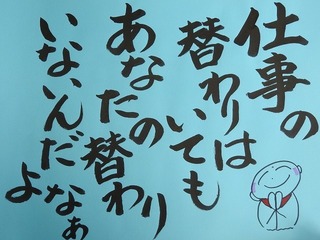 仕事の
替わりは
いても
あなたの
替わり
いないんだなぁ
よ